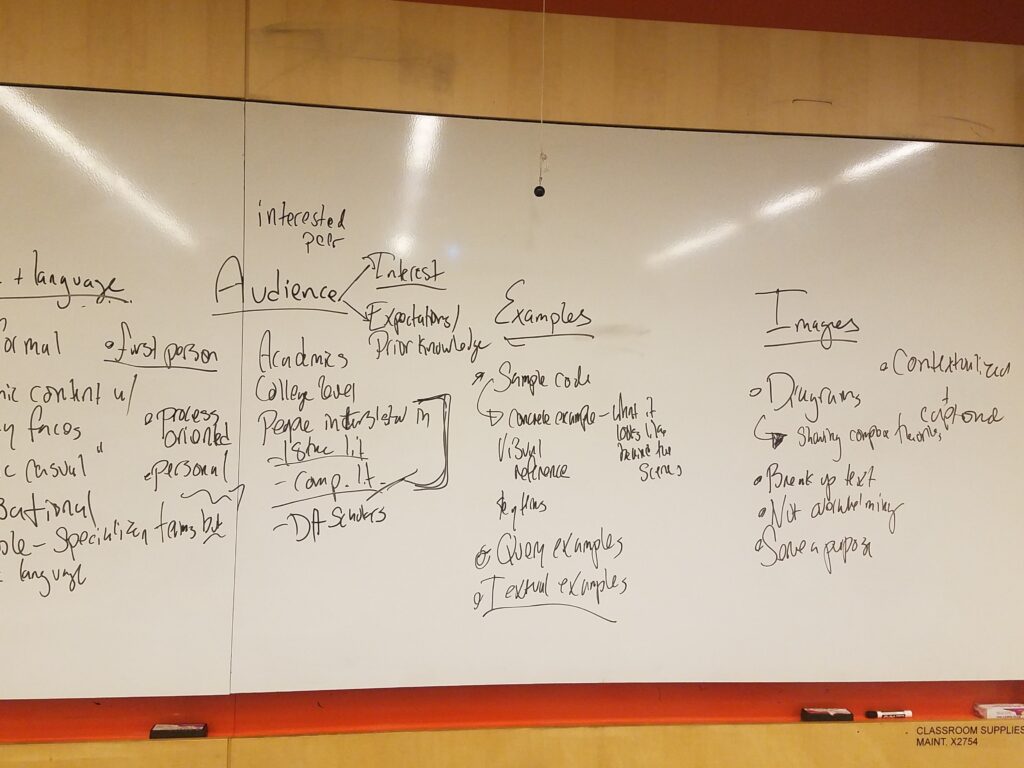 + language
ormal
• first person
ic content w/
faces
• process
oriented
ic casual"
• personal
sational
ole - Specialized terms but
language
interested
peer
Audience
Interest
Expectations/
Prior Knowledge
Academics
College level
People interested in
- comp. lit.
- DH Scholars
Examples
Sample code
Concrete example - what it
looks like
behind the
scenes
Visual
reference
Query examples
Textual examples
Images
• Contextualized
+
captioned
Diagrams
Showing complex theories
• Break up text
• Not overwhelming
• Serve a purpose
CLASSROOM SUPPLIES
MAINT. X2754